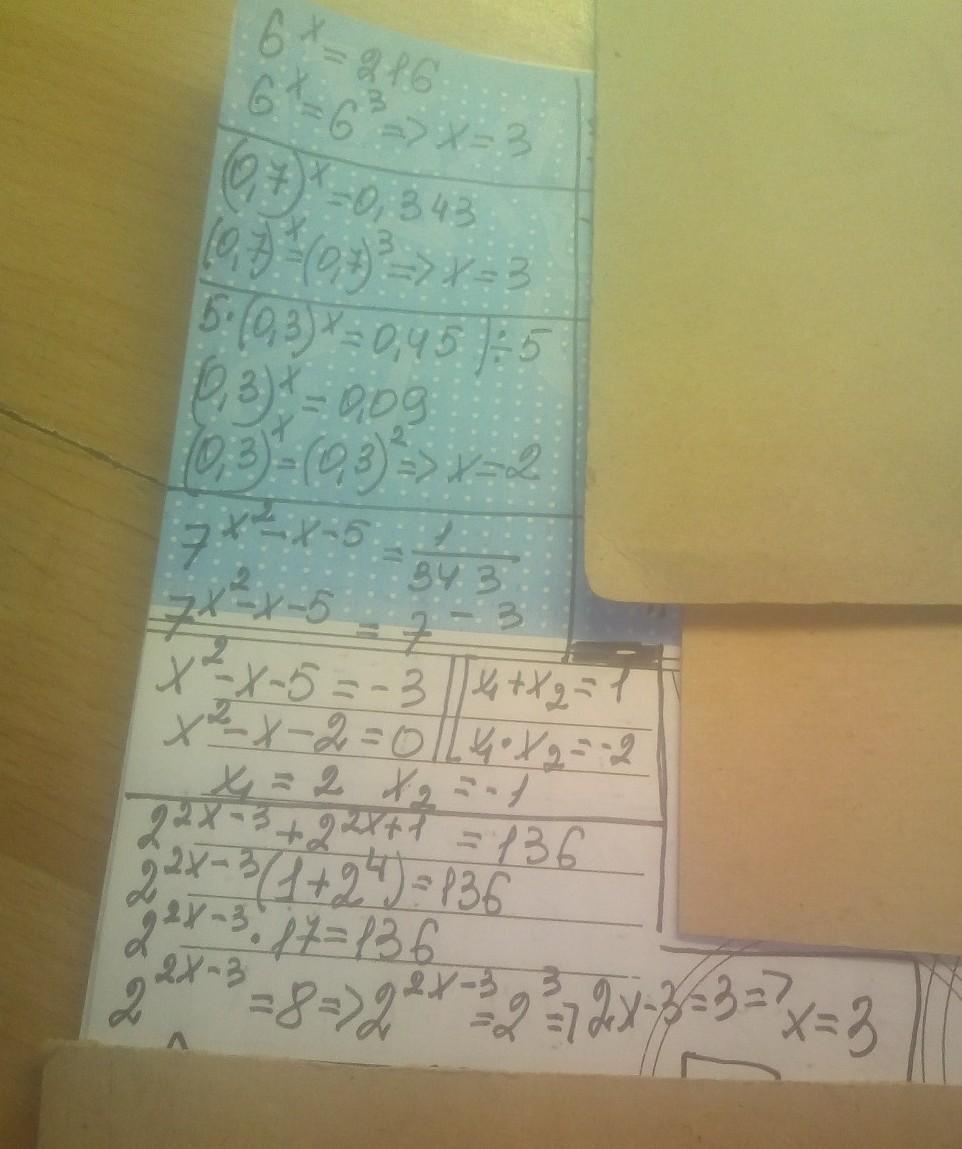 6^x = 216
6^x = 6^3 => x = 3
(0,7)^x = 0,343
(0,7)^x = (0,7)^3 => x = 3
5·(0,3)^x = 0,45 | ÷5
(0,3)^x = 0,09
(0,3)^x = (0,3)^2 => x = 2
7^(x^2-x-5) = 1/343
7^(x^2-x-5) = 7^-3
x^2-x-5 = -3 || [x₁+x₂ = 1
x^2-x-2 = 0 || [x₁·x₂ = -2
x₁ = 2 x₂ = -1
2^(2x-3) + 2^(2x+1) = 136
2^(2x-3)(1+2^4) = 136
2^(2x-3)·17 = 136
2^(2x-3) = 8 => 2^(2x-3) = 2^3 => 2x-3 = 3 => x = 3